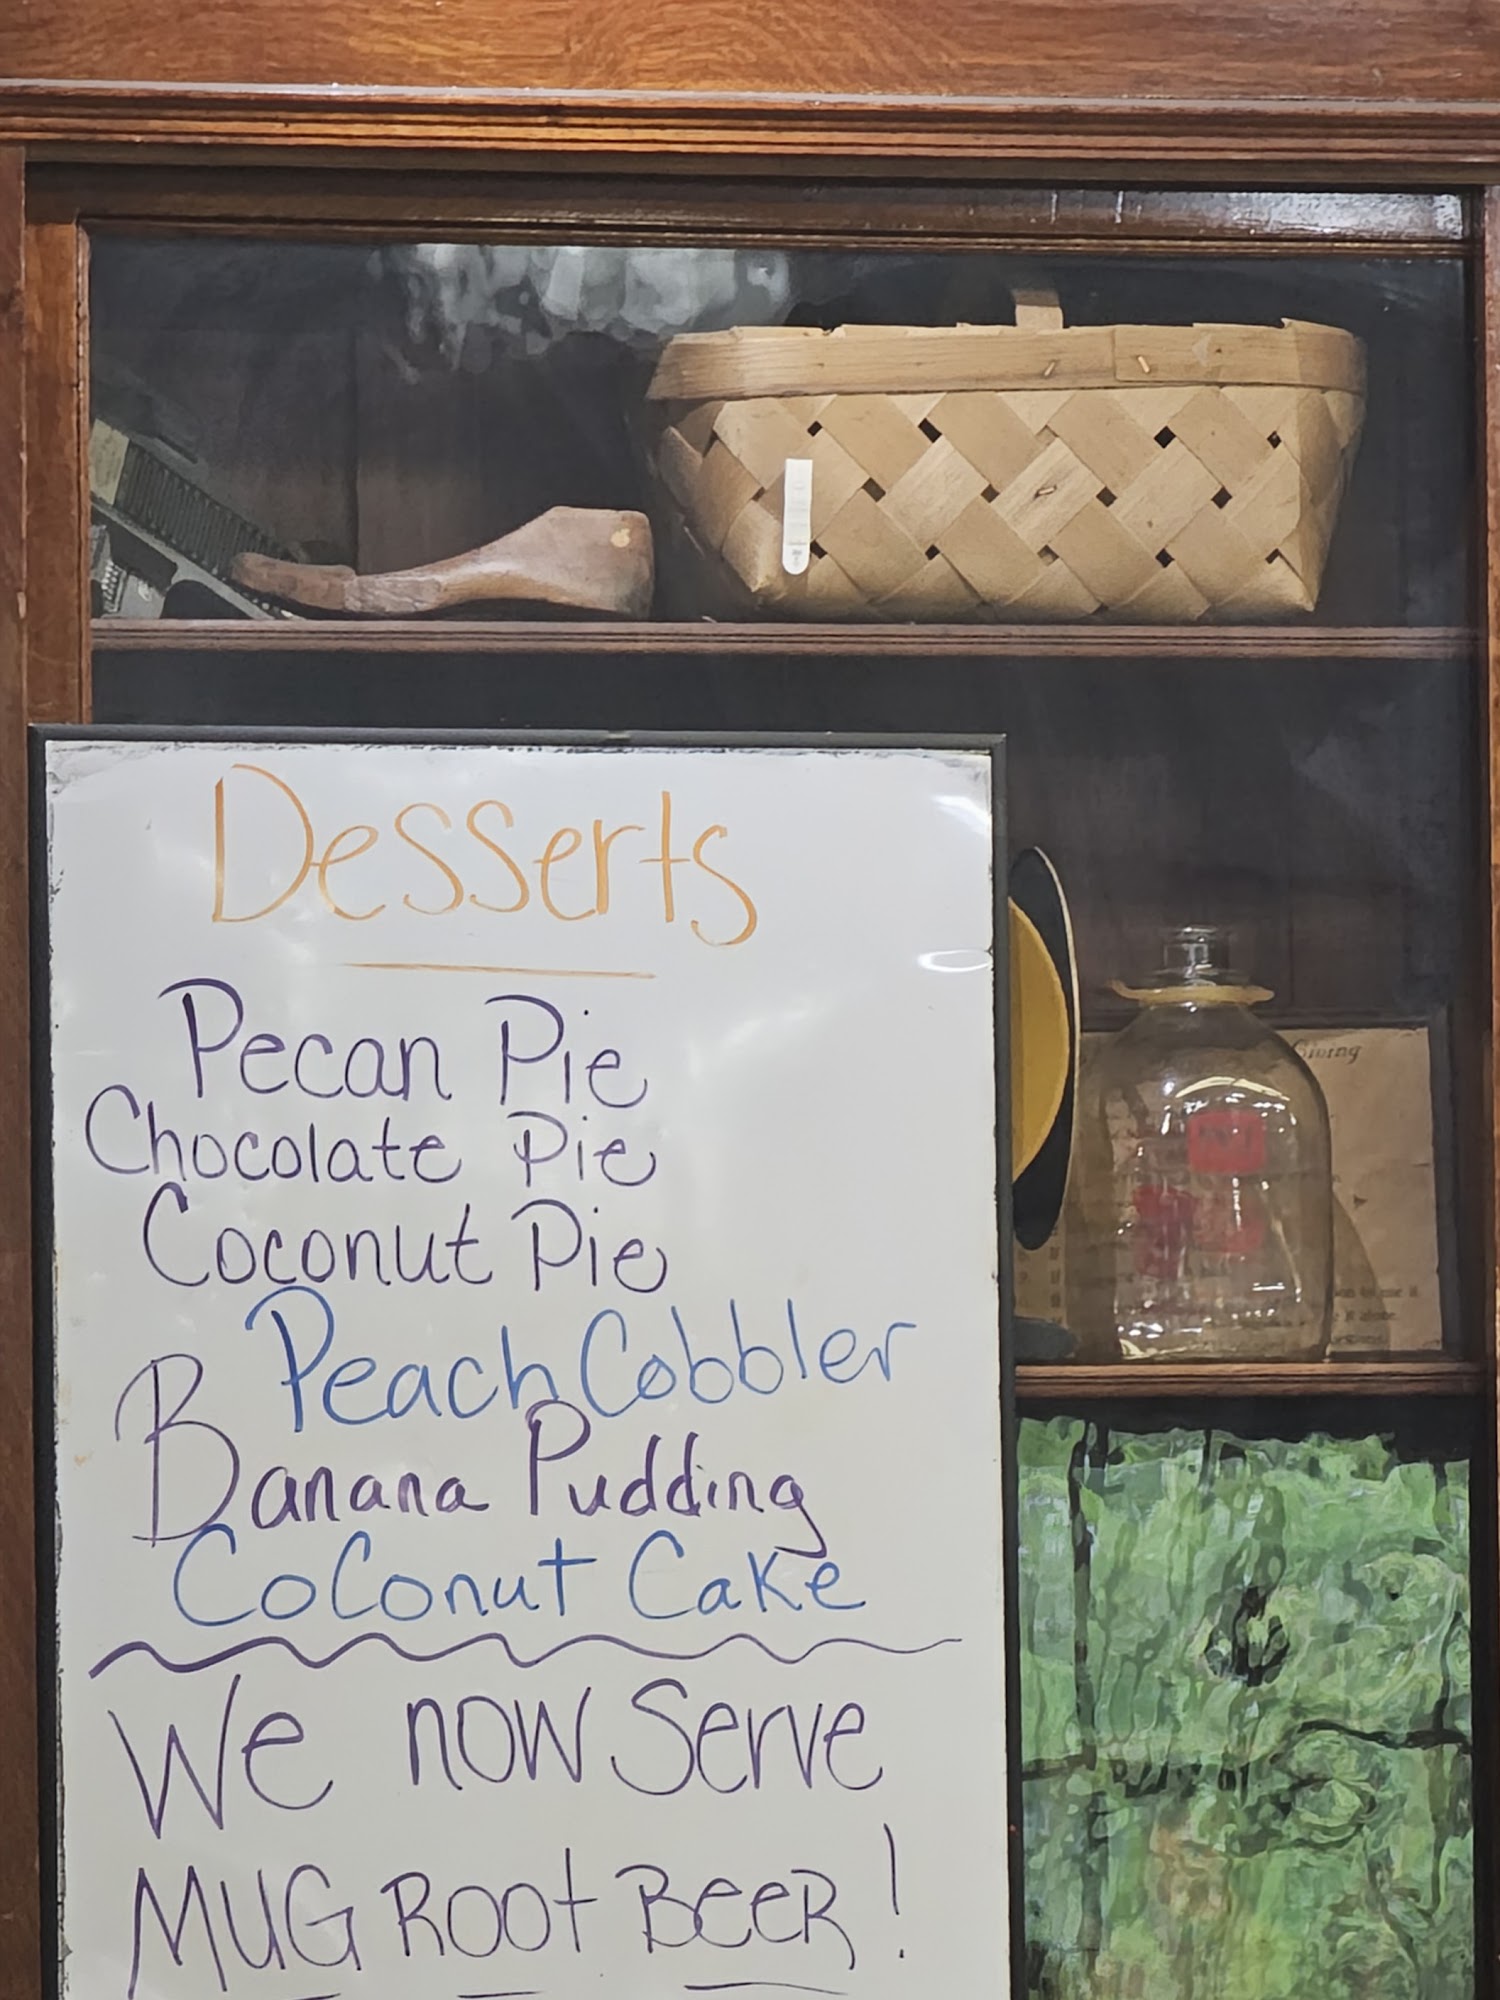 Desserts
Pecan Pie
Chocolate Pie
Coconut Pie
Peach Cobbler
Banana Pudding
Coconut Cake
We now Serve
MUG ROOt BEER!
Giving